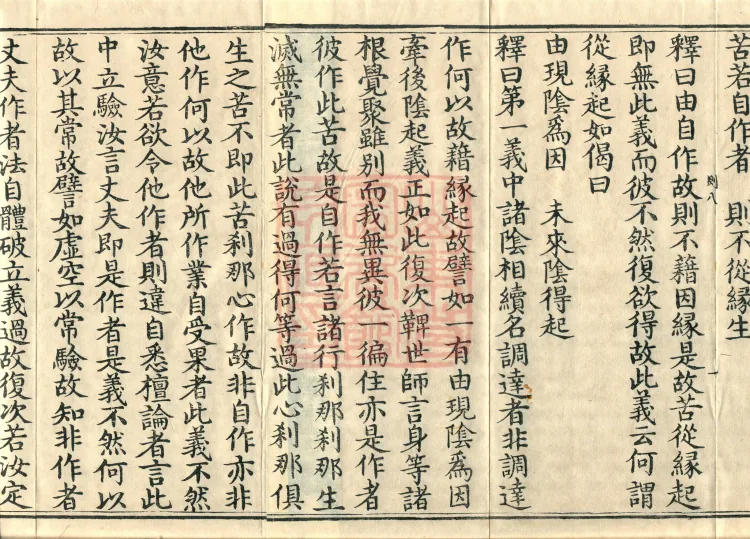 苦若自作者　則不從緣生
釋曰由自作故則不藉因緣是故苦從緣起
即無此義而彼不然復欲得故此義云何謂
從緣起如偈曰
由現陰爲因　未來陰得起
釋曰第一義中諸陰相續名調達者非調達
作何以故藉緣起故譬如一有由現陰爲因
牽後陰起義正如此復次鞞世師言身等諸
根覺聚雖別而我無異彼一徧住亦是作者
彼作此苦故是自作若言諸行刹那刹那生
滅無常者此說有過得何等過此心刹那俱
生之苦不即此苦刹那心作故非自作亦非
他作何以故他所作業自受果者此義不然
汝意若欲令他作者則違自悉檀論者言此
中立驗汝言丈夫即是作者是義不然何以
故以其常故譬如虛空以常驗故知非作者
丈夫作者法自體破立義過故復次若汝定
則八
一